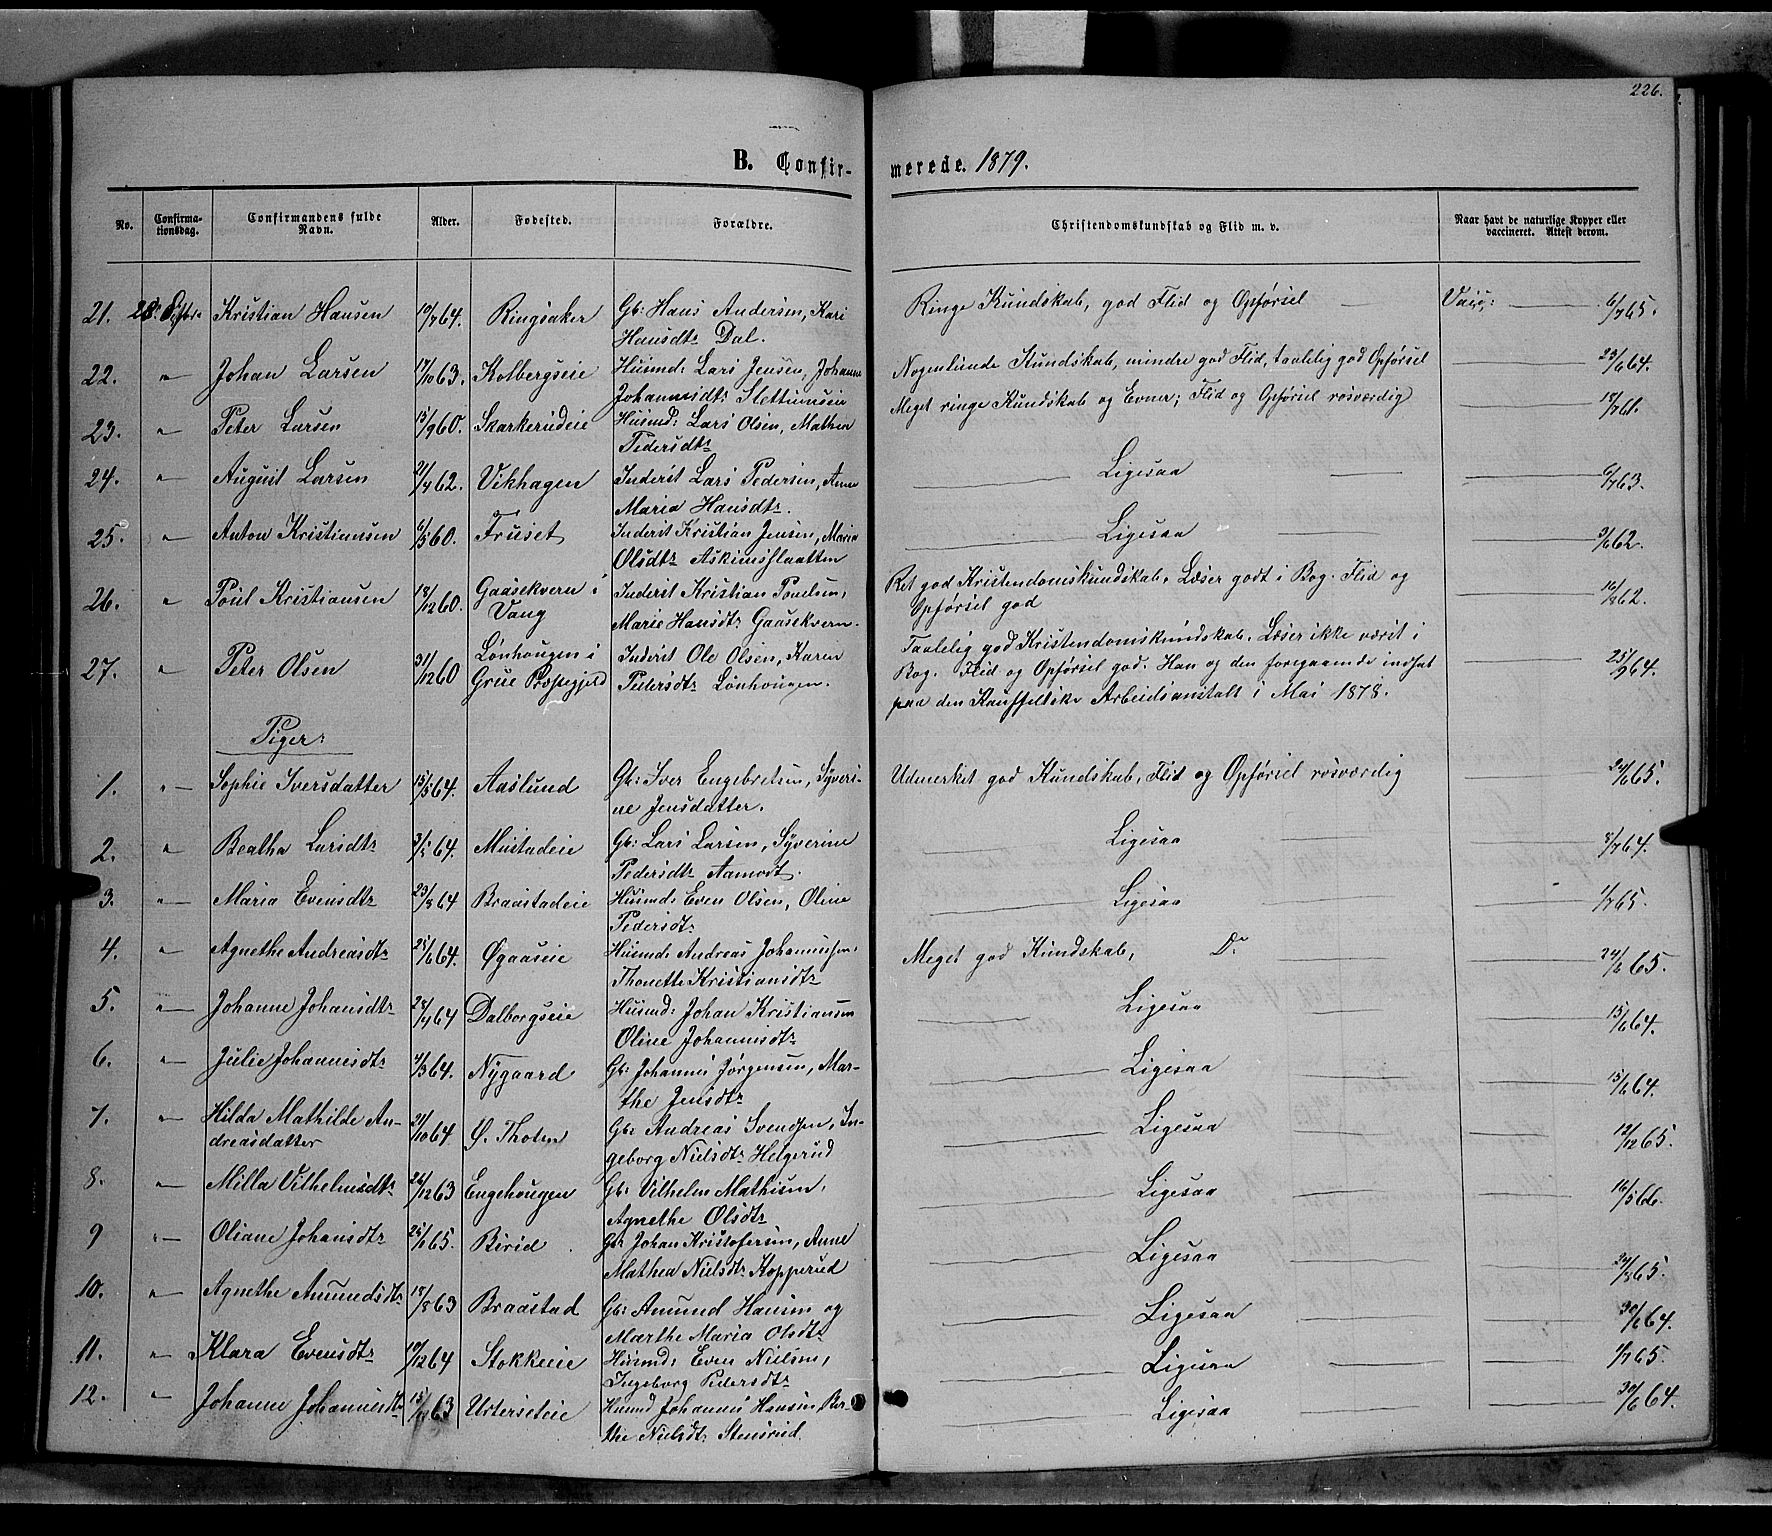 226.
B. Confirmerede. 1879.
No. Confirmationsdag. Confirmandens fulde Navn. Alder. Fødested. Forældre. Christendomskundskab og Flid m. v. Naar havt de naturlige Kopper eller vaccineret. Attest derom.
21. 28 Septbr. Kristian Hansen 19/7 64. Ringsaker Gbr: Hans Andersen, Kari Ringe Kundskab, god Flid og Opførsel — Vacc: — 6/7 65.
Hansdtr Dal.
22. " Johan Larsen 17/10 63. Kolbergseie Husmd: Lars Jensen, Johanne Nogenlunde Kundskab, mindre god Flid, taalelig god Opførsel — 23/6 64.
Johannesdtr Slettumseie
23. " Peter Larsen 15/9 60. Skarkerudeie Husmd: Lars Olsen, Mathea Meget ringe Kundskab og Evner; Flid og Opførsel rosværdig — 17/7 61.
Pedersdtr
24. " August Larsen 21/4 62. Vikhagen Inderst Lars Pedersen, Anne — Ligesaa — 6/7 63.
Maria Hansdtr.
25. " Anton Kristiansen 6/5 60. Fruset Inderst Kristian Jensen, Maria — Ligesaa — 3/6 62.
Olsdtr Askimsslaatten
26. " Poul Kristiansen 18/12 60. Gaasekvern i Inderst Kristian Poulsen, Ret god Kristendomskundskab. Læser godt i Bog. Flid og — 16/8 62.
Vang Marie Hansdtr Gaasekvern. Opførsel god
27. " Peter Olsen 31/12 60 Lønhougen i Inderst Ole Olsen, Karen Taalelig god Kristendomskundskab. Læser ikke værst i — 25/9 64.
Grue Præstegjeld Pedersdtr Lønhougen. Bog. Flid og Opførsel god. Han og den foregaaende indsat
paa den Kauffeldtske Arbeidsanstalt i Mai 1878.
Piger
1. " Sophie Iversdatter 15/5 64. Aaslund Gbr: Iver Engebretsen, Syveri- Udmerket god Kundskab, Flid og Opførsel rosværdig — 24/6 65.
ne Jensdatter.
2. " Beatha Larsdtr 3/5 64. Mustadeie Gbr: Lars Larsen, Syverine — Ligesaa — 8/7 64.
Pedersdtr Aamodt.
3. " Maria Evensdtr 23/8 64 Braastadeie Husmd: Even Olsen, Oline — Ligesaa — 1/7 65.
Pedersdtr
4. " Agnethe Andreasdtr 25/6 64. Øgaaseie Husmd: Andreas Johannessen, Meget god Kundskab, Do — 24/6 65.
Thonette Kristiansdtr
5. " Johanne Johansdtr 28/4 64 Dalborgseie Husmd: Johan Kristiansen — Ligesaa — 15/6 64.
Oline Johannesdtr
6. " Julie Johannesdtr 4/3 64. Nygaard Gbr: Johannes Jørgensen, Mar- — Ligesaa — 15/6 64.
the Jensdtr
7. " Hilda Mathilde An- 21/10 64. Ø. Thoten Gbr: Andreas Svendsen, In- — Ligesaa — 12/12 65.
dreasdatter geborg Nielsdtr Helgerud
8. " Milla Vilhelmsdtr 24/12 63 Engehougen Gbr: Vilhelm Mathisen, — Ligesaa — 16/5 66.
Agnethe Olsdtr
9 " Oliane Johansdtr 25/1 65. Birid Gbr Johan Kristofersen, Anne — Ligesaa — 24/8 65.
Mathea Nielsdtr Kopperud
10. " Agnethe Amundsdtr 18/8 63 Braastad Gbr: Amund Hansen og — Ligesaa — 30/6 64.
Marthe Maria Olsdtr
11. " Klara Evensdtr 19/12 64 Stokkeeie Husmd: Even Nielsen, — Ligesaa — 1/7 65.
Ingeborg Pedersdtr
12. " Johanne Johannesdtr 63 Husmd Johannes Hansen, Ber- — Ligesaa — 30/6 64.
the Nielsdtr Stensrud.